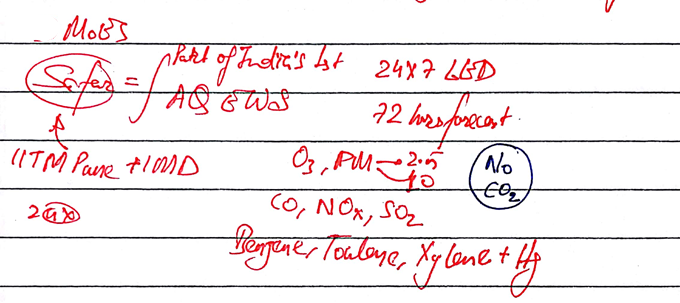 MoES
Safar = Part of India's 1st 24x7 LED
AQ EWS 72 hrs forecast.
IITM Pune + IMD O3, PM → 2.5 No
→ 10 CO2
CO, NOx, SO2
Benzene, Toulene, Xylene + Hg